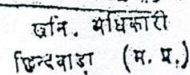 खनि. अधिकारी
छिन्दवाड़ा (म. प्र.)